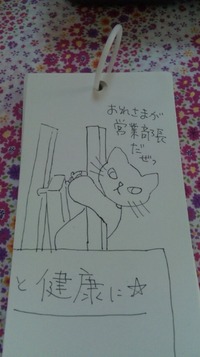 おれさまが
営業部長
だぜっ
と健康に☆